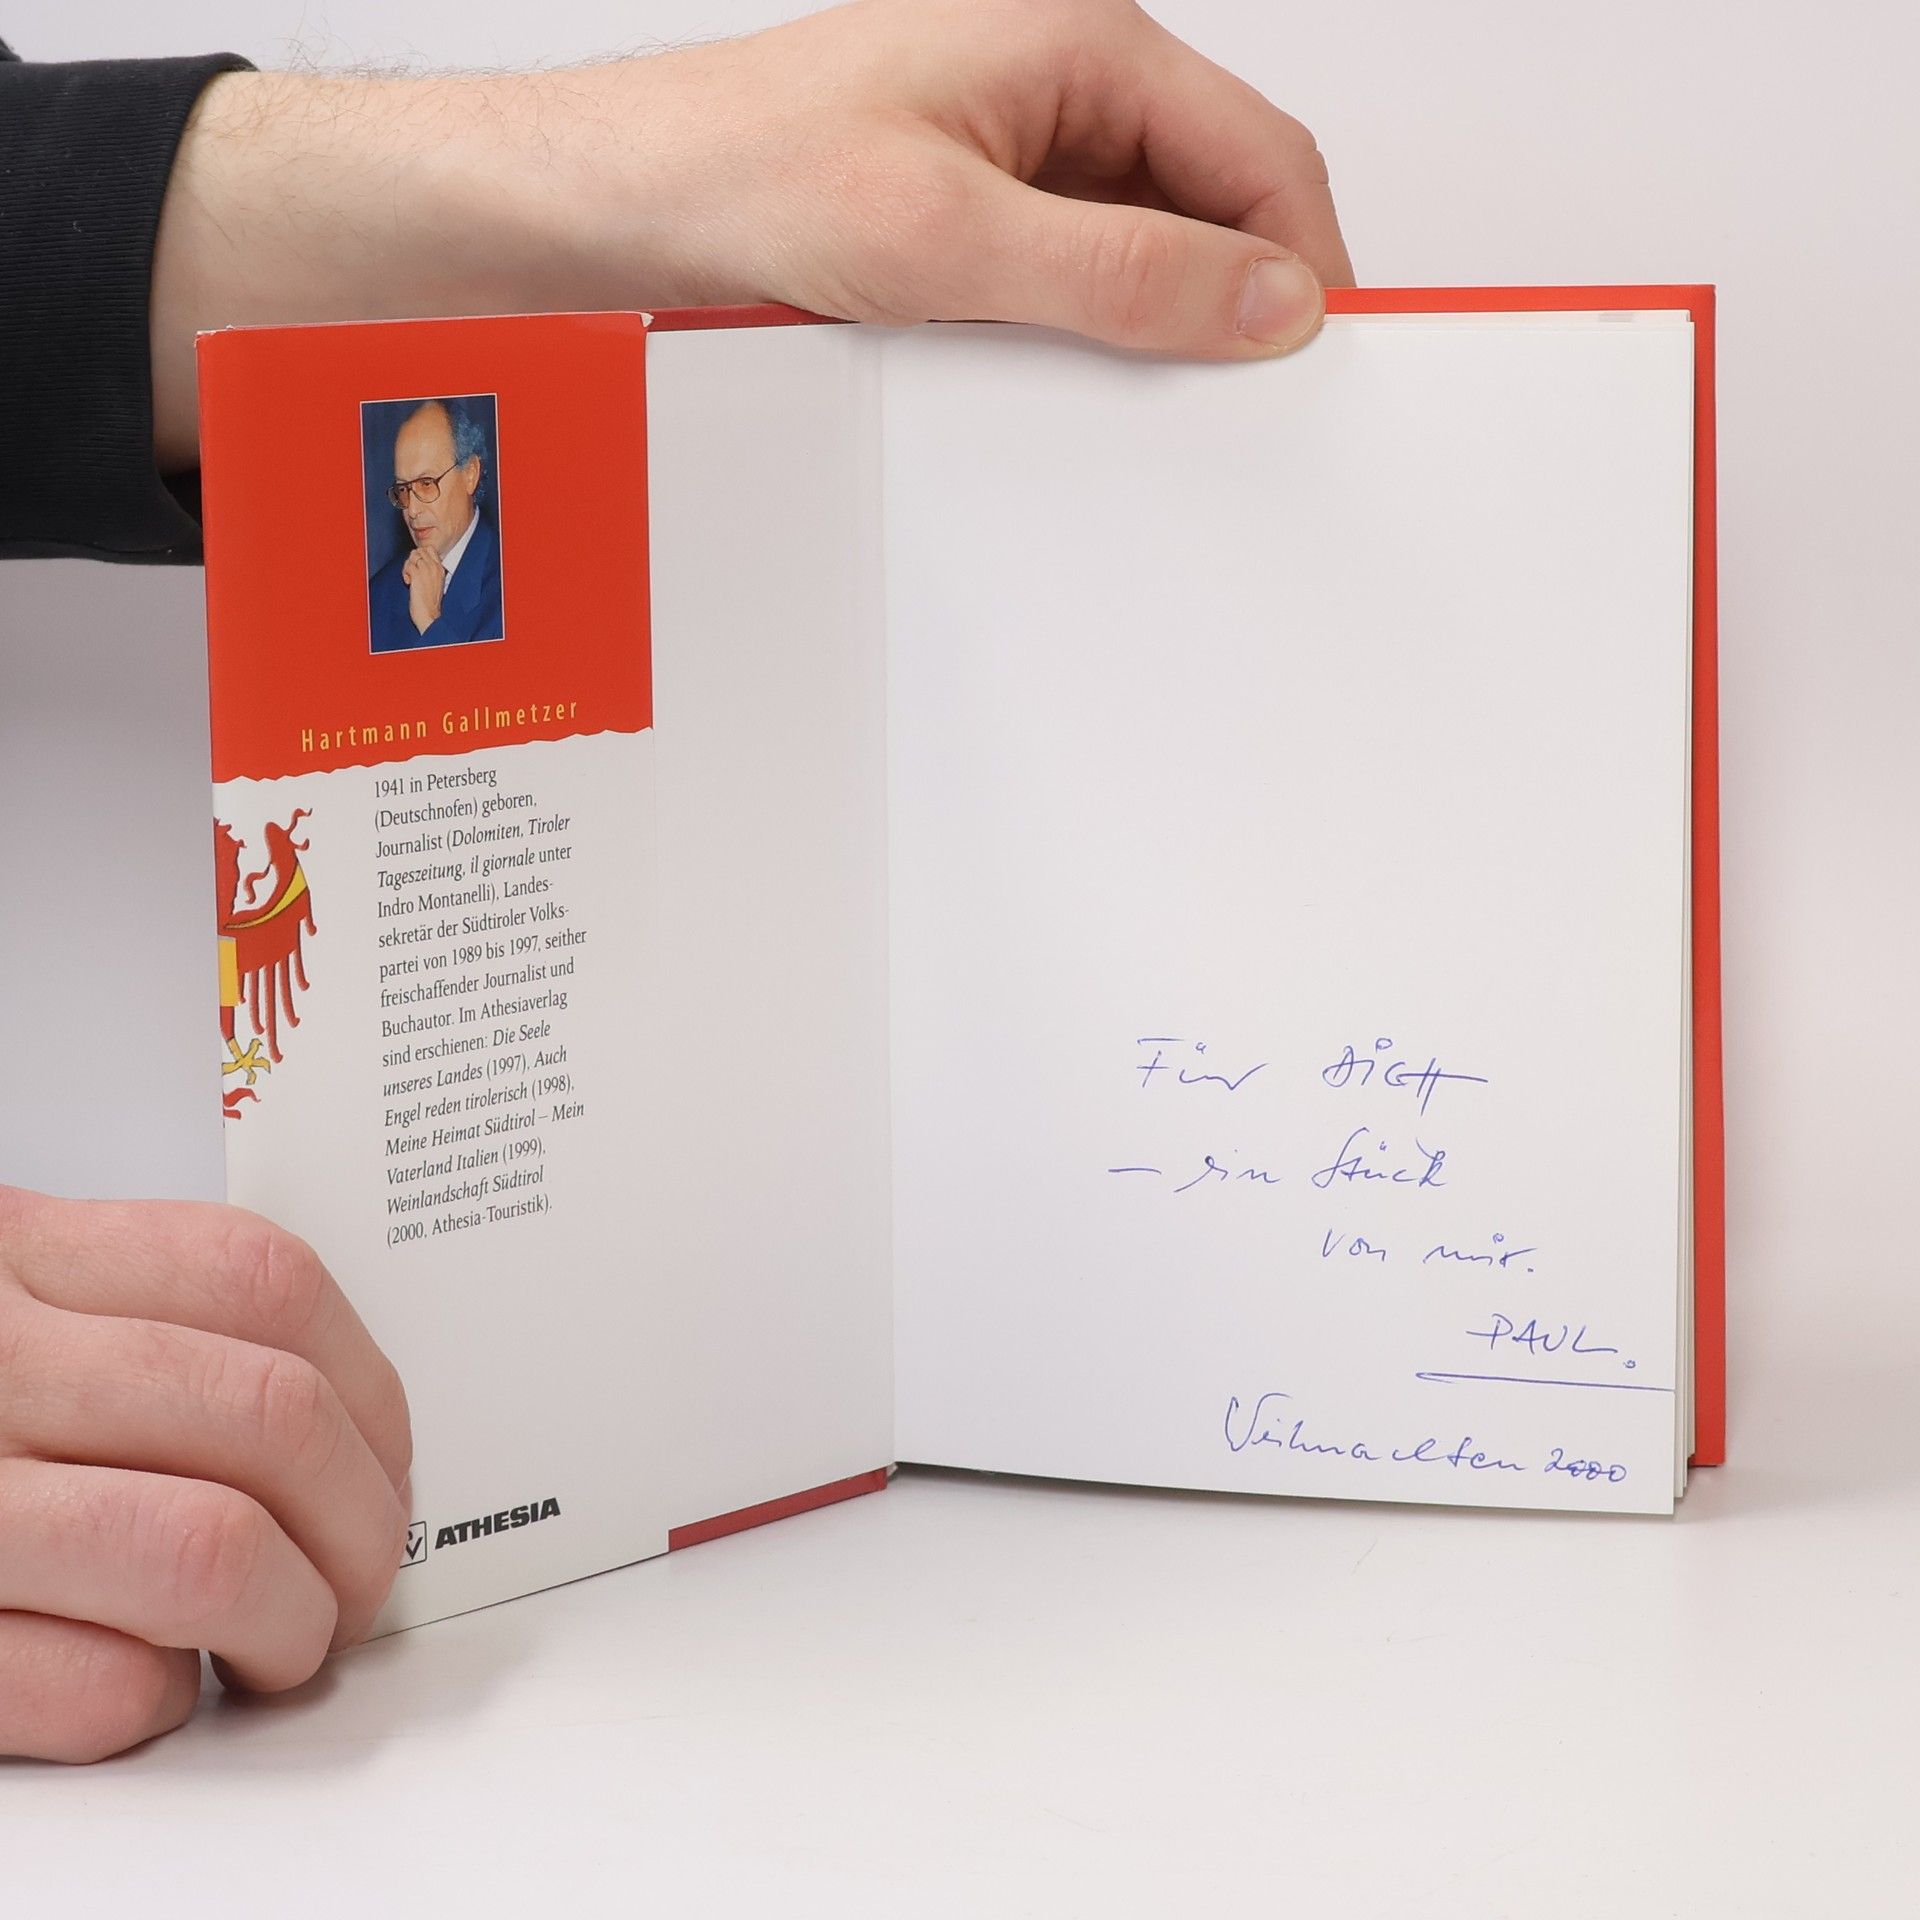 Hartmann Gallmetzer
1941 in Petersberg
(Deutschnofen) geboren,
Journalist (Dolomiten, Tiroler
Tageszeitung, il giornale unter
Indro Montanelli), Landes-
sekretär der Südtiroler Volks-
partei von 1989 bis 1997, seither
freischaffender Journalist und
Buchautor. Im Athesiaverlag
sind erschienen: Die Seele
unseres Landes (1997), Auch
Engel reden tirolerisch (1998),
Meine Heimat Südtirol – Mein
Vaterland Italien (1999),
Weinlandschaft Südtirol
(2000, Athesia-Touristik).
ATHESIA
Für DiCH
– ein Stück
von mir.
PAUL.
Weihnachten 2000